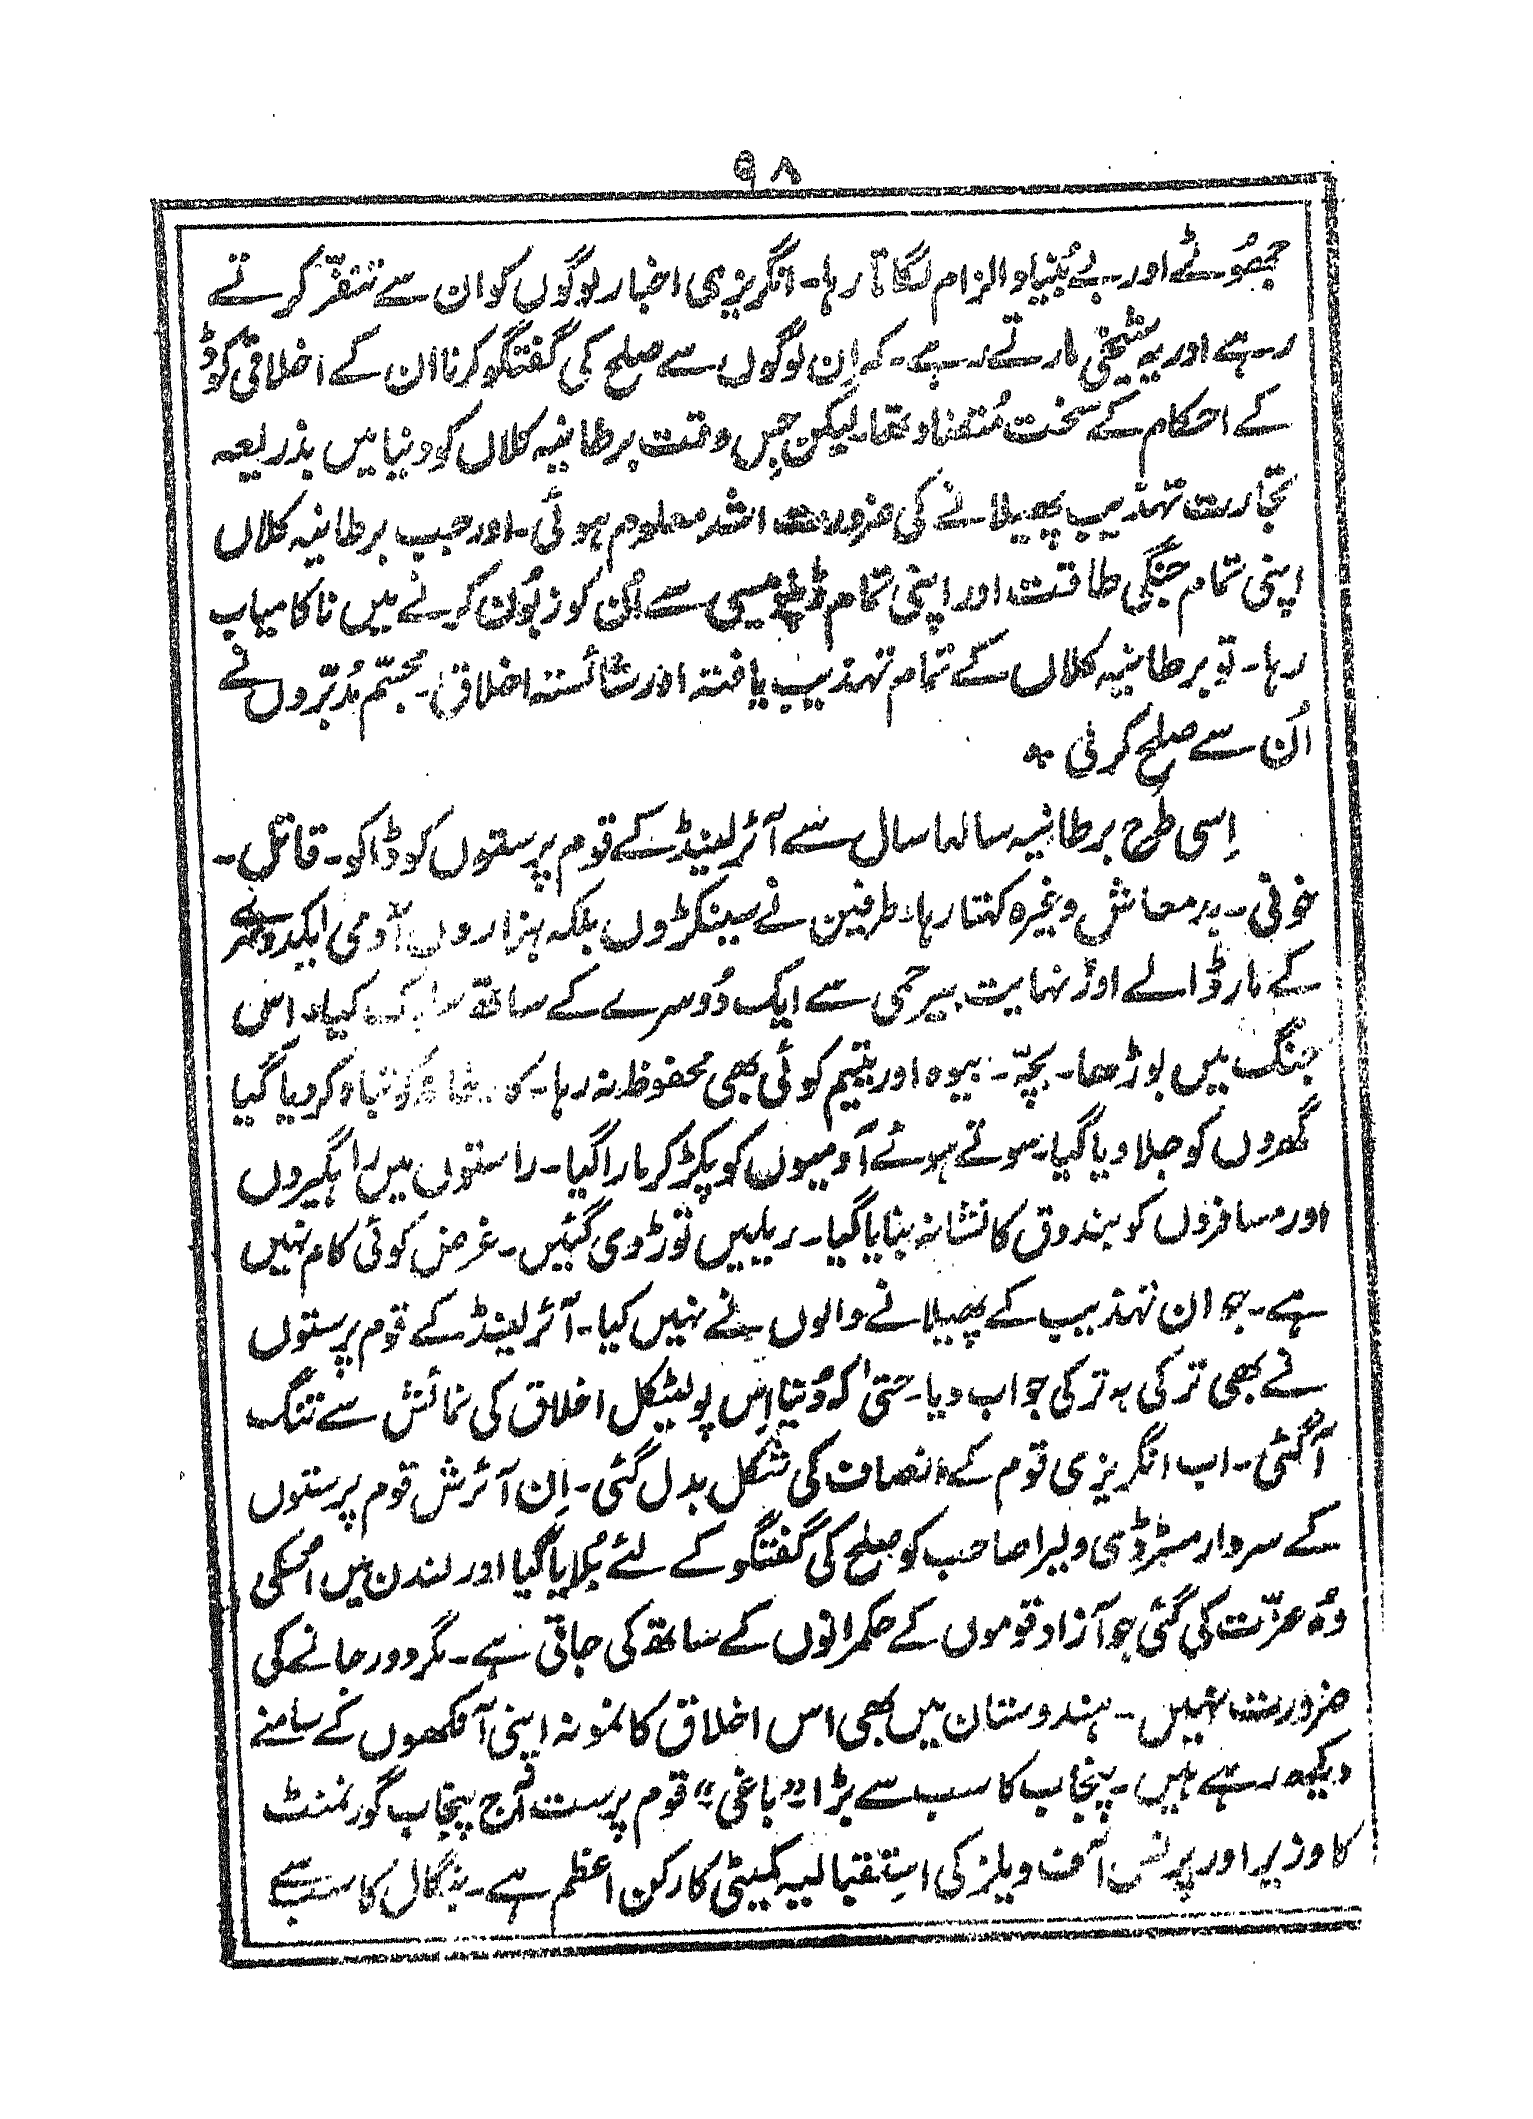 ۹۸
جھُوٹے اور بے بُنیاد الزام لگاتا رہا۔ انگریزی اخبار لوگوں کو ان سے متنفّر کرتے
رہے اور یہ شیخی مارتے رہے۔ کہ اِن لوگوں سے صلح کی گفتگو کرنا ان کے اخلاقی کوڈ
کے احکام کے سخت مُتضاد تھا۔ لیکن جِس وقت برطانیہ کلاں کو دنیا میں بذریعہ
تجارت تہذیب پھیلانے کی ضرورت اشد معلوم ہوئی۔ اور جب برطانیہ کلاں
اپنی تمام جنگی طاقت اور اپنی تمام ڈپلومیسی سے اُن کو زبُون کرنے میں ناکامیاب
رہا۔ تو برطانیہ کلاں کے تمام تہذیب یافتہ اور شائستہ اخلاق۔ مجسّم مُدبّروں نے
اُن سے صلح کر لی ٭
اِسی طرح برطانیہ سالہا سال سے آئرلینڈ کے قوم پرستوں کو ڈاکو۔ قاتل۔
خونی۔ بدمعاش وغیرہ کہتا رہا۔ طرفین نے سینکڑوں بلکہ ہزاروں آدمی ایکدوسرے
کے مار ڈالے اور نہایت بیرحمی سے ایک دُوسرے کے ساتھ سلوک کیا۔ اس
جنگ میں بوڑھا۔ بچّہ۔ بیوہ اور یتیم کوئی بھی محفوظ نہ رہا۔ کو تباہ کر دیا گیا
گھروں کو جلا دیا گیا۔ سوتے ہوئے آدمیوں کو پکڑ کر مارا گیا۔ راستوں میں راہگیروں
اور مسافروں کو بندوق کا نشانہ بنایا گیا۔ ریلیں توڑ دی گئیں۔ غرض کوئی کام نہیں
ہے۔ جو ان تہذیب کے پھیلانے والوں نے نہیں کیا۔ آئرلینڈ کے قوم پرستوں
نے بھی ترکی بہ ترکی جواب دیا۔ حتیٰ کہ دُنیا اِس پولیٹکل اخلاق کی نمائش سے تنگ
آ گئی۔ اب انگریزی قوم کے انصاف کی شکل بدل گئی۔ اِن آئرش قوم پرستوں
کے سردار مسٹر ڈی ولیرا صاحب کو صلح کی گفتگو کے لئے بُلایا گیا اور لندن میں اسکی
وُہ عزّت کی گئی جو آزاد قوموں کے حکمرانوں کے ساتھ کی جاتی ہے۔ مگر دور جانے کی
ضرورت نہیں۔ ہندوستان میں بھی اس اخلاق کا نمونہ اپنی آنکھوں کے سامنے
دیکھ رہے ہیں۔ پنجاب کا سب سے بڑا "باغی" قوم پرست آج پنجاب گورنمنٹ
کا وزیر اور پرنس آف ویلز کی استقبالیہ کمیٹی کا رکن اعظم ہے۔ بنگال کا سب سے